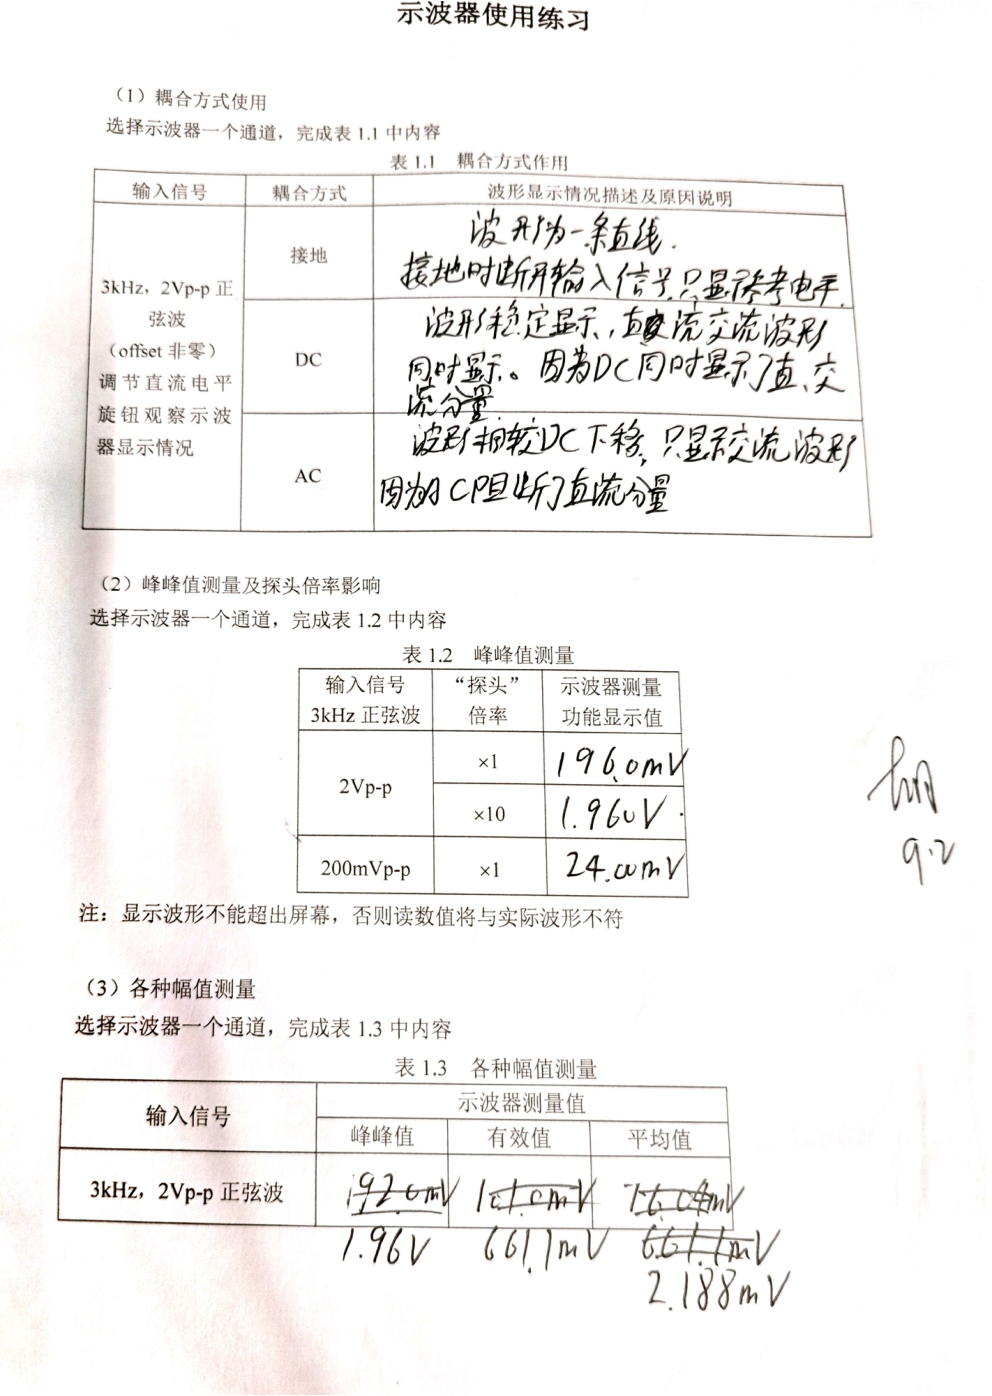 示波器使用练习
（1）耦合方式使用
选择示波器一个通道，完成表 1.1 中内容
表 1.1 耦合方式作用
输入信号 耦合方式 波形显示情况描述及原因说明
3kHz，2Vp-p 正
弦波
（offset 非零）
调节直流电平
旋钮观察示波
器显示情况
接地
波形为一条直线.
接地时断开输入信号,只显示参考电平.
DC
波形稳定显示,直流交流波形
同时显示。因为DC同时显示了直、交
流分量.
AC
波形相较DC下移,只显示交流波形
因为 C阻断了直流分量
（2）峰峰值测量及探头倍率影响
选择示波器一个通道，完成表 1.2 中内容
表 1.2 峰峰值测量
输入信号 “探头” 示波器测量
3kHz 正弦波 倍率 功能显示值
2Vp-p ×1 196.0mV
×10 1.960V
200mVp-p ×1 24.00mV
9.2
注：显示波形不能超出屏幕，否则读数值将与实际波形不符
（3）各种幅值测量
选择示波器一个通道，完成表 1.3 中内容
表 1.3 各种幅值测量
输入信号 示波器测量值
峰峰值 有效值 平均值
3kHz，2Vp-p 正弦波 192.0mV
1.96V 661.1mV 661.1mV
2.188mV